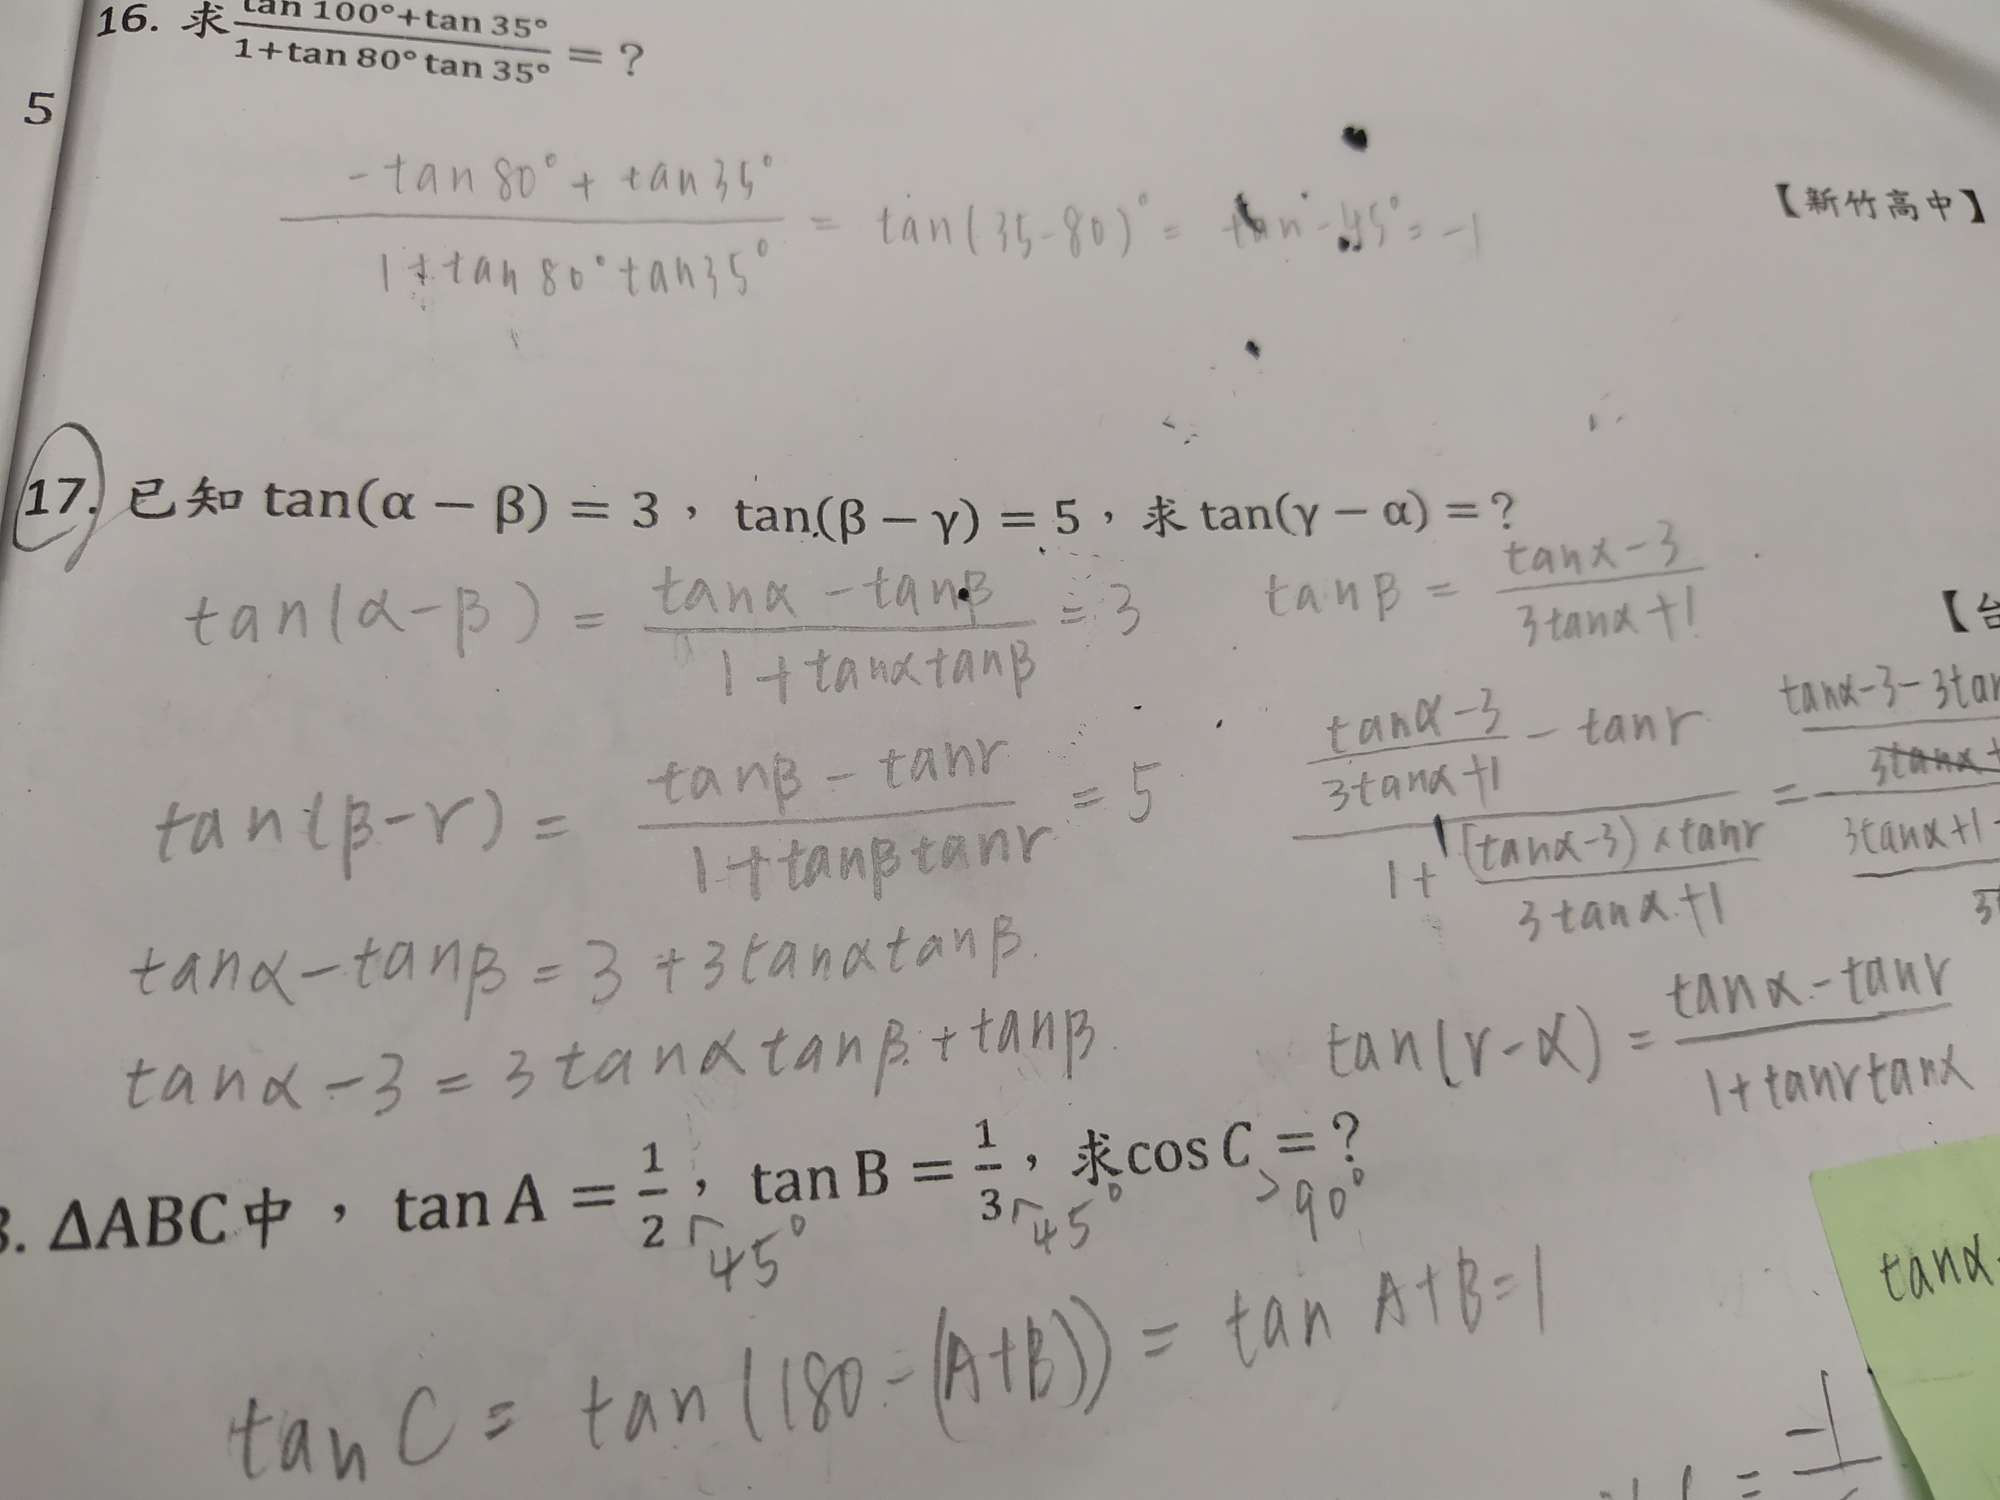 16. 求 tan 100°+tan 35° / 1+tan 80° tan 35° = ?
5
-tan 80° + tan 35° / 1 + tan 80° tan 35° = tan(35-80)° = tan -45° = -1
【新竹高中】
17. 已知 tan(α − β) = 3，tan(β − γ) = 5，求 tan(γ − α) = ?
tan(α-β) = tanα - tanβ / 1 + tanα tanβ = 3
tanβ = tanα - 3 / 3tanα + 1
【台
tan(β-r) = tanβ - tanr / 1 + tanβ tanr = 5
tanα - 3 / 3tanα + 1 - tanr / 1 + (tanα-3) × tanr / 3tanα + 1 = tanα - 3 - 3tan / 3tanα + / 3tanα + 1
tanα - tanβ = 3 + 3tanα tanβ
tanα - 3 = 3tanα tanβ + tanβ
tan(r-α) = tanα - tanr / 1 + tanr tanα
. ΔABC 中，tan A = 1/2，tan B = 1/3，求 cos C = ?
45° 45° > 90°
tanα
tan C = tan(180-(A+B)) = tan A+B = 1
= -1